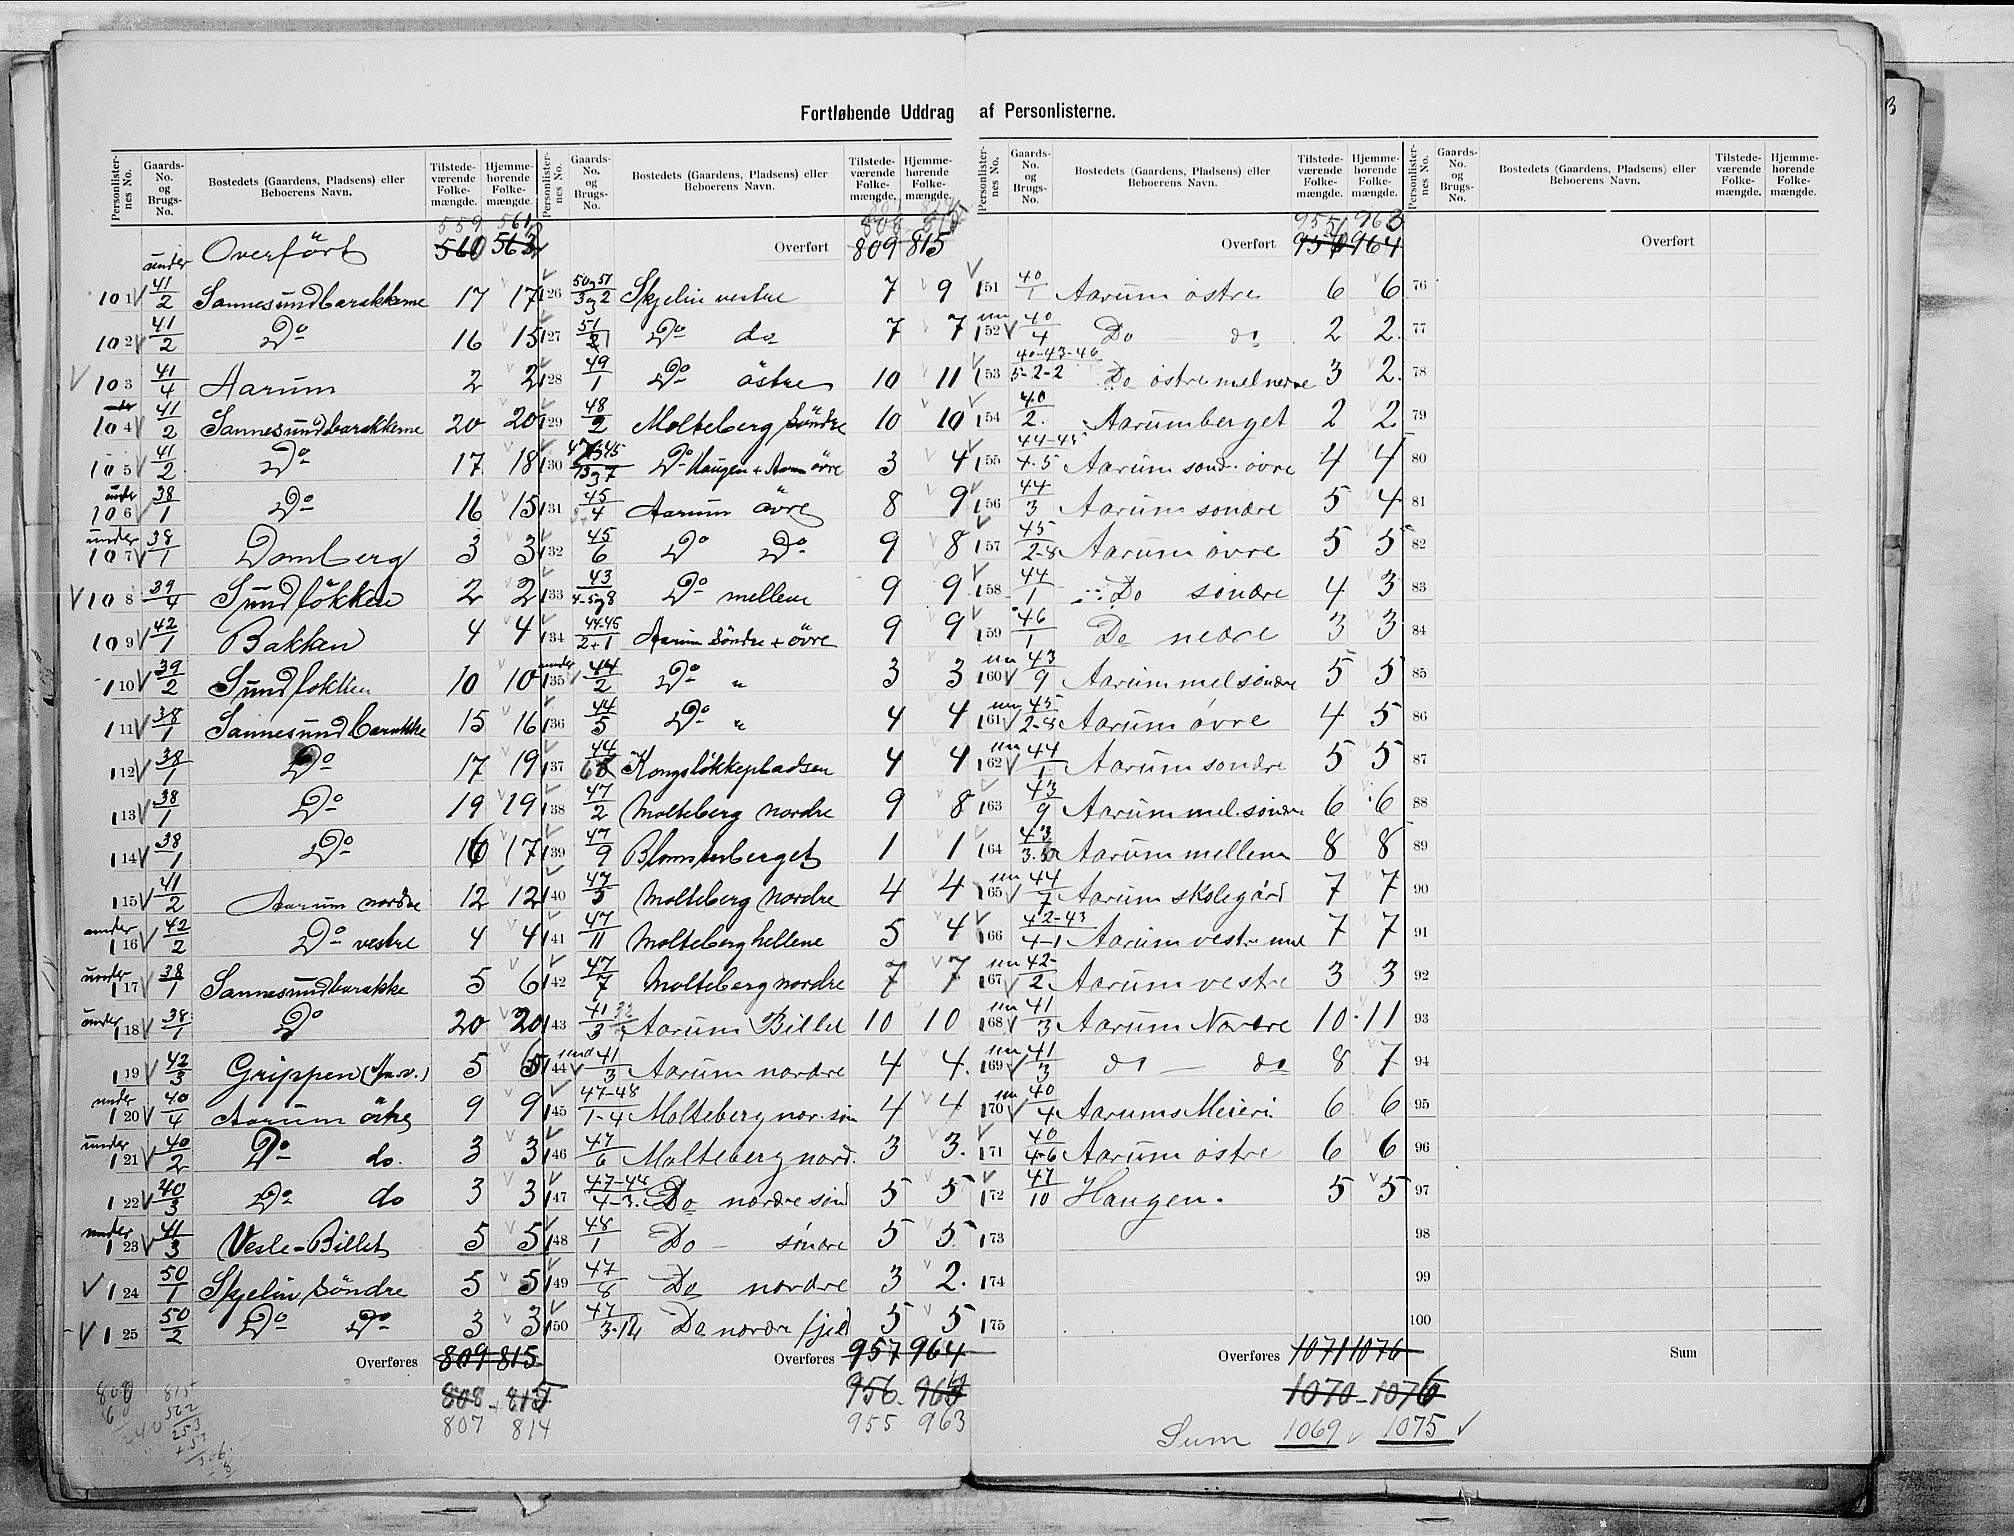 Fortløbende Uddrag af Personlisterne.
Personlisternes No. Gaards-No. og Brugs-No. Bostedets (Gaardens, Pladsens) eller Beboerens Navn. Tilstedeværende Folkemængde. Hjemmehørende Folkemængde.
559 561
Overført 560 563
101 under 41/2 Sannesundbarakkerne 17 17
102 41/2 Do 16 15
103 41/4 Aarum 2 2
104 under 41/2 Sannesundbarakkerne 20 20
105 41/2 Do 17 18
106 under 38/1 Do 16 15
107 under 38/1 Domberg 3 3
108 39/4 Sundløkken 2 2
109 42/1 Bakken 4 4
110 39/2 Sundløkken 10 10
111 38/1 Sannesundbarakke 15 16
112 38/1 Do 17 19
113 38/1 Do 19 19
114 38/1 Do 16 17
115 41/2 Aarum nordre 12 12
116 under 42/2 Do vestre 4 4
117 under 38/1 Sannesundbarakke 5 6
118 under 38/1 Do 20 20
119 42/3 Grippen 5 5
120 under 40/4 Aarum östre 9 9
121 under 40/2 Do do. 3 3
122 40/3 Do do 3 3
123 under 41/3 Vesle-Billet 5 5
124 50/1 Skjelin Söndre 5 5
125 50/2 Do Do 3 3
Overføres 809 815
808 815
807 814
Personlisternes No. Gaards-No. og Brugs-No. Bostedets (Gaardens, Pladsens) eller Beboerens Navn. Tilstedeværende Folkemængde. Hjemmehørende Folkemængde.
Overført 809 815
126 50og51/3og2 Skjelin vestre 7 9
127 51/1 Do do 7 7
128 49/1 Do östre 10 11
129 48/2 Molteberg Söndre 10 10
130 Do Haugen + Aarum övre 3 4
131 45/4 Aarum övre 8 9
132 45/6 Do Do 9 8
133 43/4-5og8 Do mellem 9 9
134 44-45/2+1 Aarum Söndre + övre 9 9
135 under 44/2 Do " 3 3
136 44/5 Do " 4 4
137 44/6 Kongsløkkepladsen 4 4
138 47/2 Molteberg nordre 9 8
139 47/9 Blomsterberget 1 1
140 47/5 Molteberg Nordre 4 4
141 47/11 Molteberghellene 5 4
142 47/7 Molteberg nordre 7 7
143 41/3 Aarum Billet 10 10
144 und 41/3 Aarum nordre 4 4.
145 47-48/1-4 Molteberg nor. sön 4 4
146 47/6 Molteberg nord. 3 3.
147 47-48/4-3. Do nordre sönd 5 5
148 48/1 Do - söndre 5 5
149 47/8 Do nordre 3 2.
150 47 Do nordre fjeld 5 5
Overføres 957 964
956 963
955 963
Personlisternes No. Gaards-No. og Brugs-No. Bostedets (Gaardens, Pladsens) eller Beboerens Navn. Tilstedeværende Folkemængde. Hjemmehørende Folkemængde.
955 963
Overført 957 964
151 40/1 Aarum östre 6 6
152 un 40/4 Do do 2 2.
153 40-43-46/5-2-2 Do östre mel nedre 3 2.
154 40/2. Aarumberget 2 2
155 44-45/4.5 Aarum sond. övre 4 4
156 44/3 Aarum sondre 5 4
157 45/2-8 Aarum övre 5 5
158 44/1 Do söndre 4 3
159 46/1 Do nedre 3 3
160 un 43/9 Aarum mel söndre 5 5
161 un 45/2-8 Aarum övre 4 5
162 un 44/1 Aarum sondre 5 5
163 43/9 Aarum mel. söndre 6 6
164 43 Aarum mellem 8 8
165 un 44/7 Aarum skolegård 7 7
166 42-43/4-1 Aarum vestre mel 7 7
167 un 42-/2 Aarum vestre 3 3
168 un 41/3 Aarum Nordre 10 11
169 un 41/3 do - do 8 7
170 un 40/4 Aarums Meieri 6 6
171 40/4-6 Aarum östre 6 6
172 47/10 Haugen. 5 5
173
174
175
Overføres 1071 1076
1070 - 1076
Sum 1069 1075
Personlisternes No. Gaards-No. og Brugs-No. Bostedets (Gaardens, Pladsens) eller Beboerens Navn. Tilstedeværende Folkemængde. Hjemmehørende Folkemængde.
Overført
76
77
78
79
80
81
82
83
84
85
86
87
88
89
90
91
92
93
94
95
96
97
98
99
100
Sum